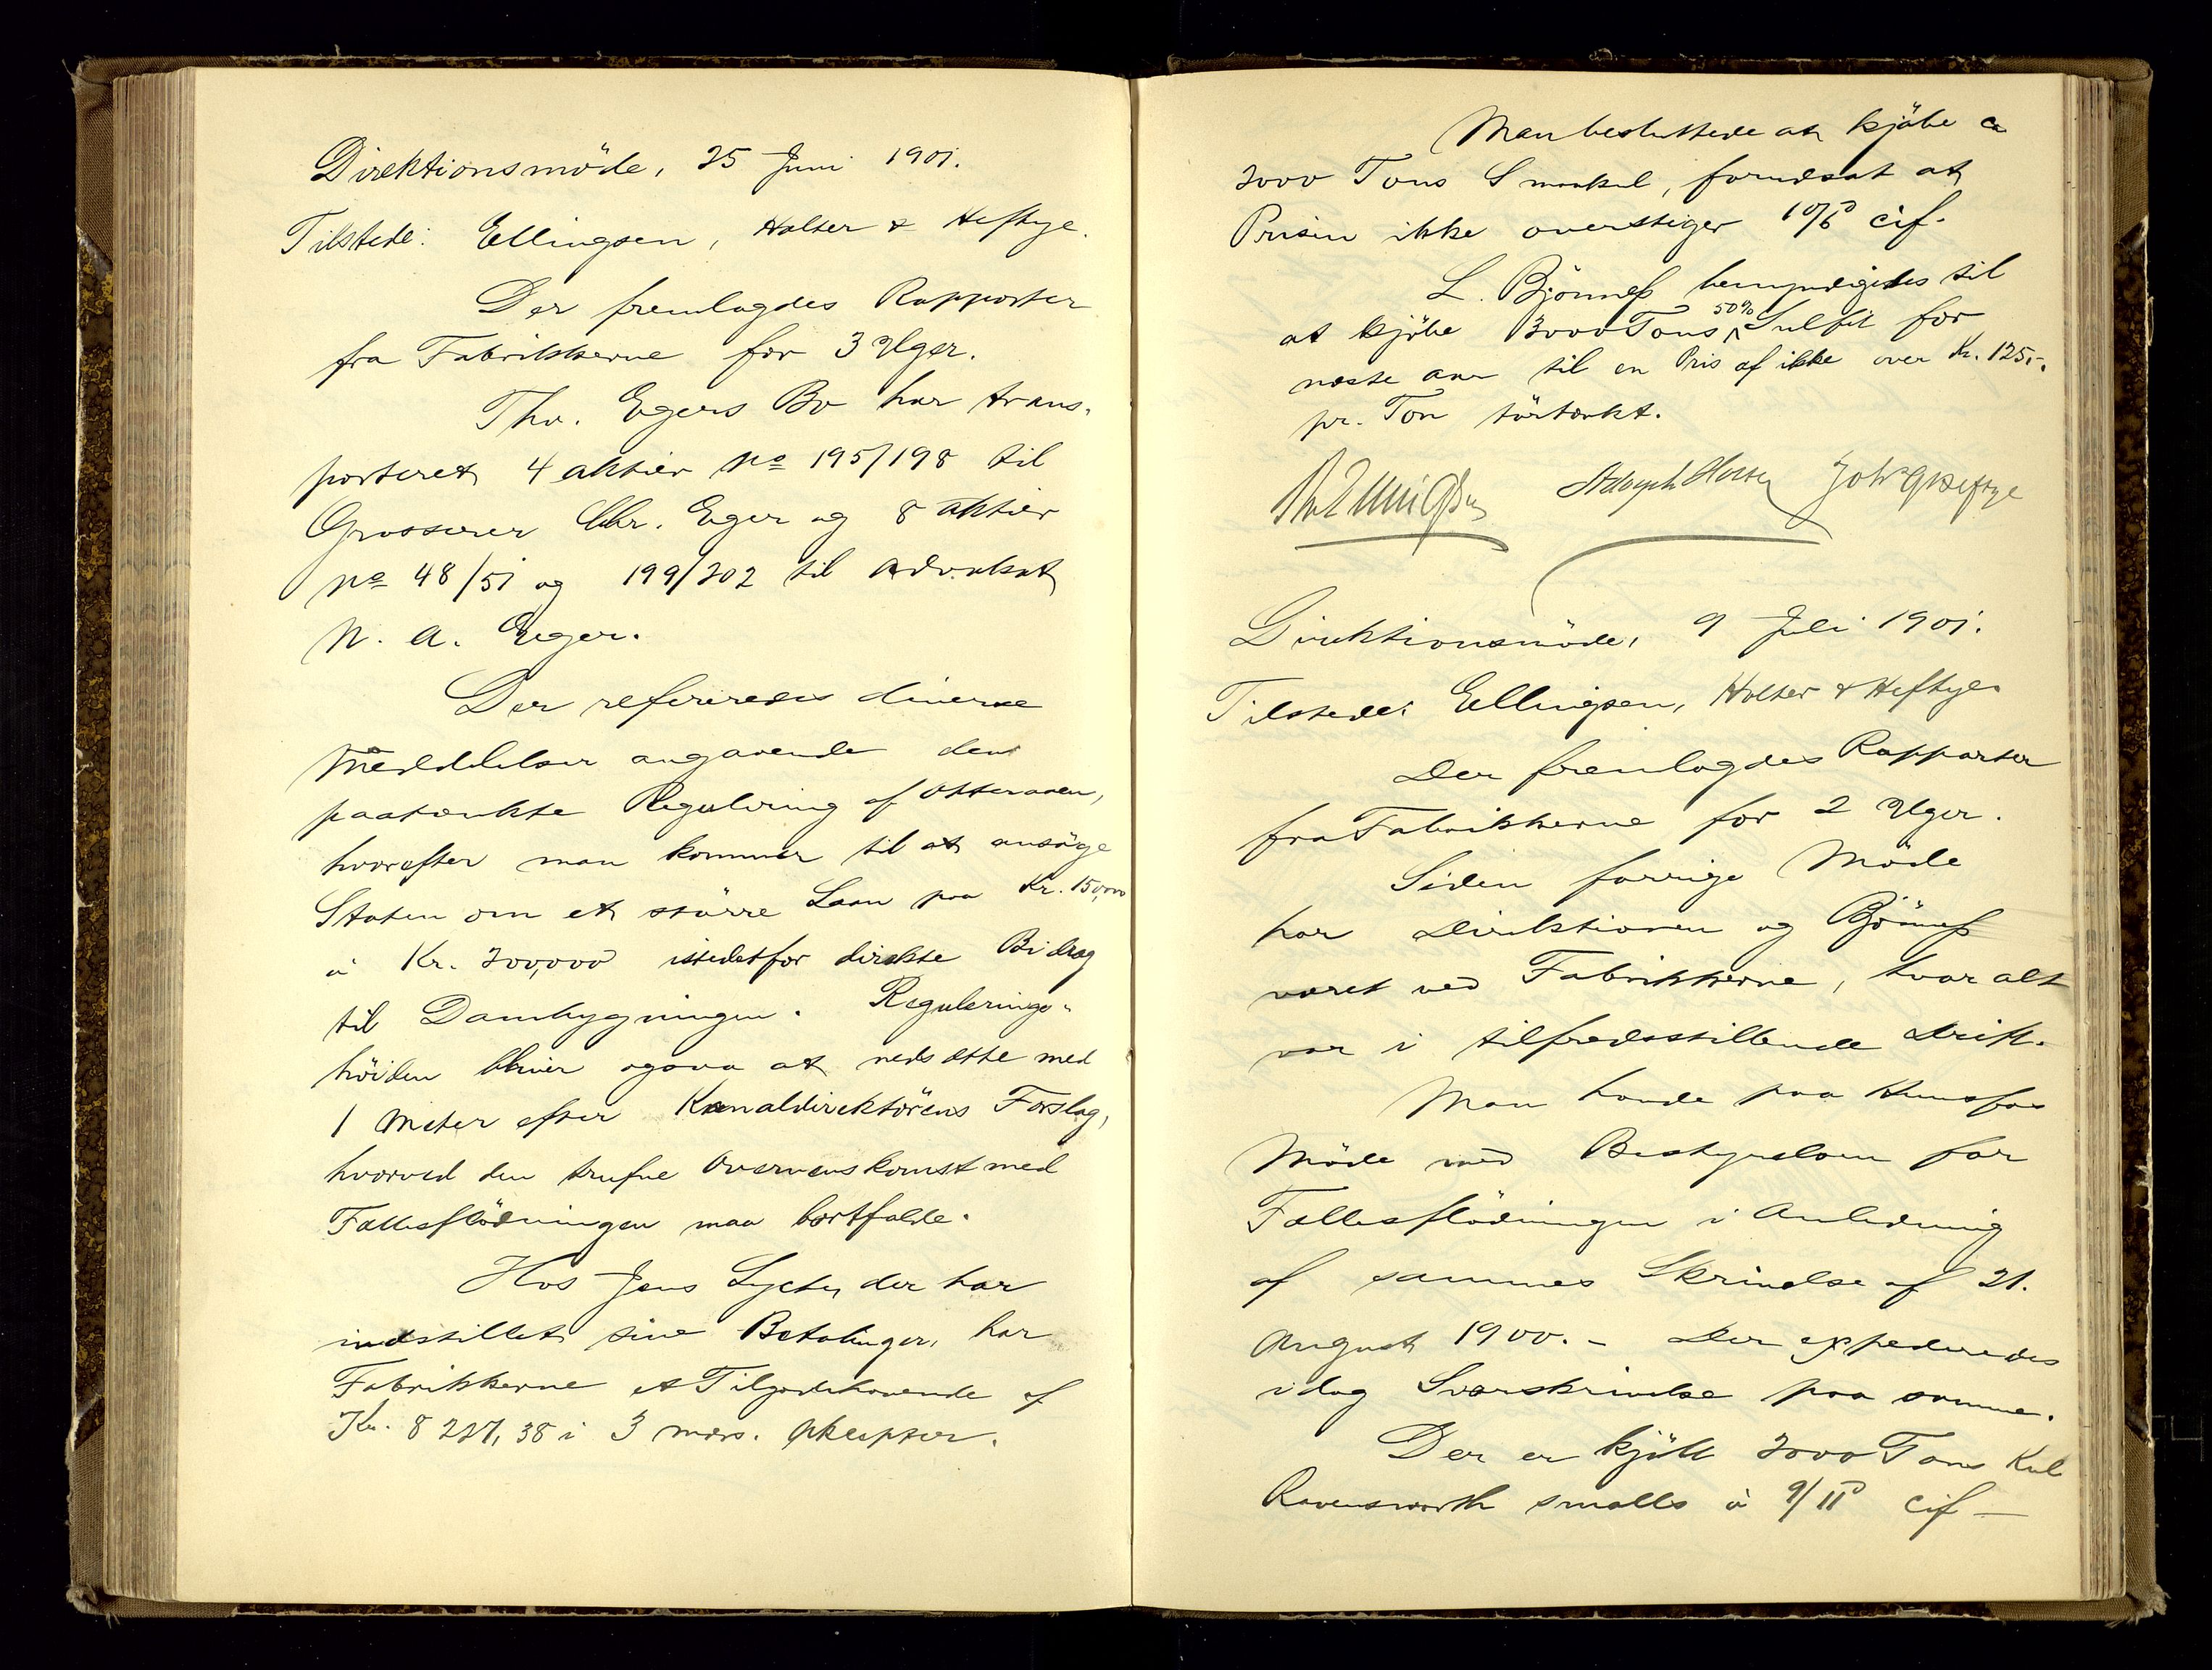 Direktionsmöde, 25 Juni 1901.
Tilstede: Ellingsen, Holter & Heftye.
Der fremlagdes Rapporter
fra Fabrikkerne for 3 Uger.
Thv. Egers Bo har trans-
porteret 4 aktier No 195/198 til
Grosserer Chr. Eger og 8 aktier
No 48/51 og 199/202 til Advokat
N. A. Eger.
Der refereredes diverse
Meddelelser angaaende den
paatænkte Regulering af Otteraaen,
hvorefter man kommer til at ansöge
Staten om et större Laan paa Kr. 150,000
à Kr. 200,000 istedetfor direkte Bidrag
til Dambygningen. Regulerings-
höiden bliver ogsaa at nedsætte med
1 Meter efter Kanaldirektörens Forslag,
hvorved den trufne Overenskomst med
Fællesflödningen maa bortfalde.
Hos Jens Lycke, der har
indstillet sine Betalinger, har
Fabrikkerne et Tilgodehavende af
Kr. 8 227,38 i 3 mdrs. Aksepter.
Man besluttede at kjöbe ca
2000 Tons Smaakul, forudsat at
Prisen ikke overstiger 10/6D cif.
L. Bjönness bemyndigedes til
at kjöbe 3000 Tons 50% Sulfit for
næste aar til en Pris af ikke over Kr. 125,-
pr. Ton törtænkt.
Direktionsmöde, 9 Juli 1901.
Tilstede: Ellingsen, Holter & Heftye.
Der fremlagdes Rapporter
fra Fabrikkerne for 2 Uger.
Siden forrige Möde
har Direktionen og Bjönness
været ved Fabrikkerne, hvor alt
var i tilfredsstillende Drift.
Man havde paa Hunsfos
Möde med Bestyrelsen for
Fællesflödningen i Anledning
af sammes Skrivelse af 21.
August 1900. - Der expederedes
idag Svarskrivelse paa samme.
Der er kjöbt 2000 Tons Kul
Ravensworth smalls à 9/11D cif -